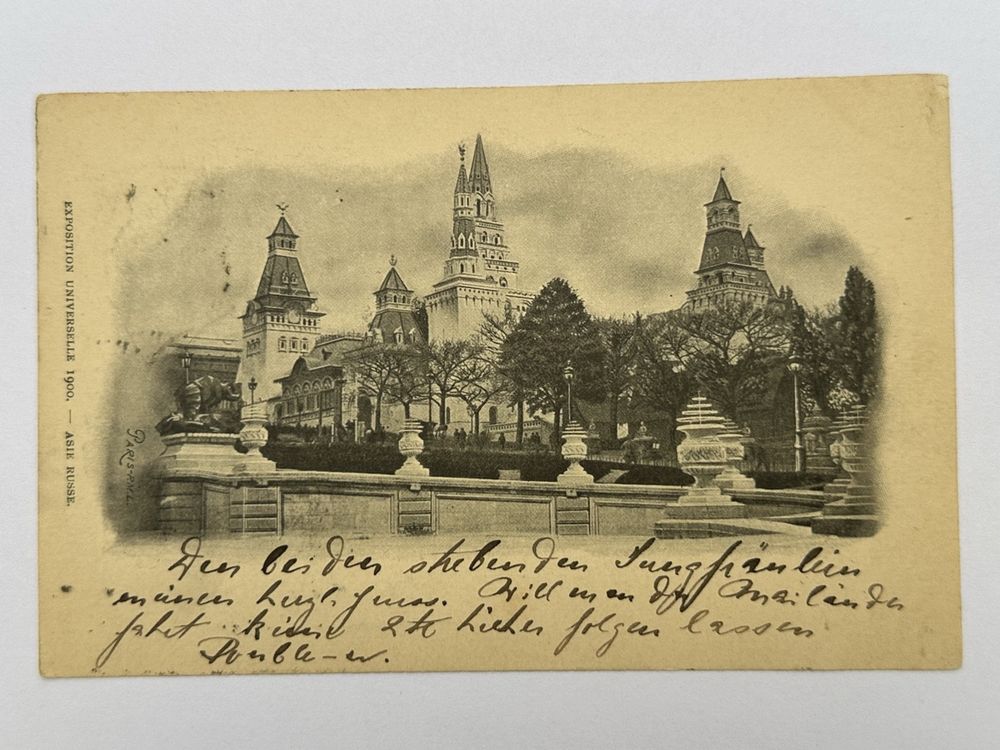 EXPOSITION UNIVERSELLE 1900. — ASIE RUSSE.
Den beiden strebenden Jungfräulein
meinen herzl. Gruss. Will man der Mailänder
fahrt keine hieher folgen lassen